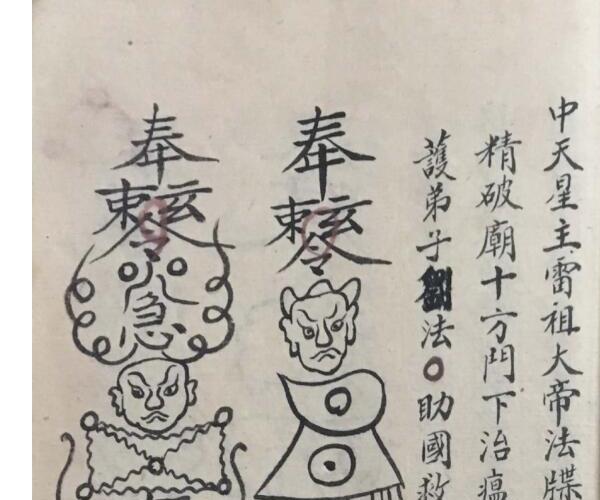 中天星主雷祖大帝法牒
精破廟十方門下治瘟
護弟子劉法〇助國救
奉
敕令
奉
敕令
急